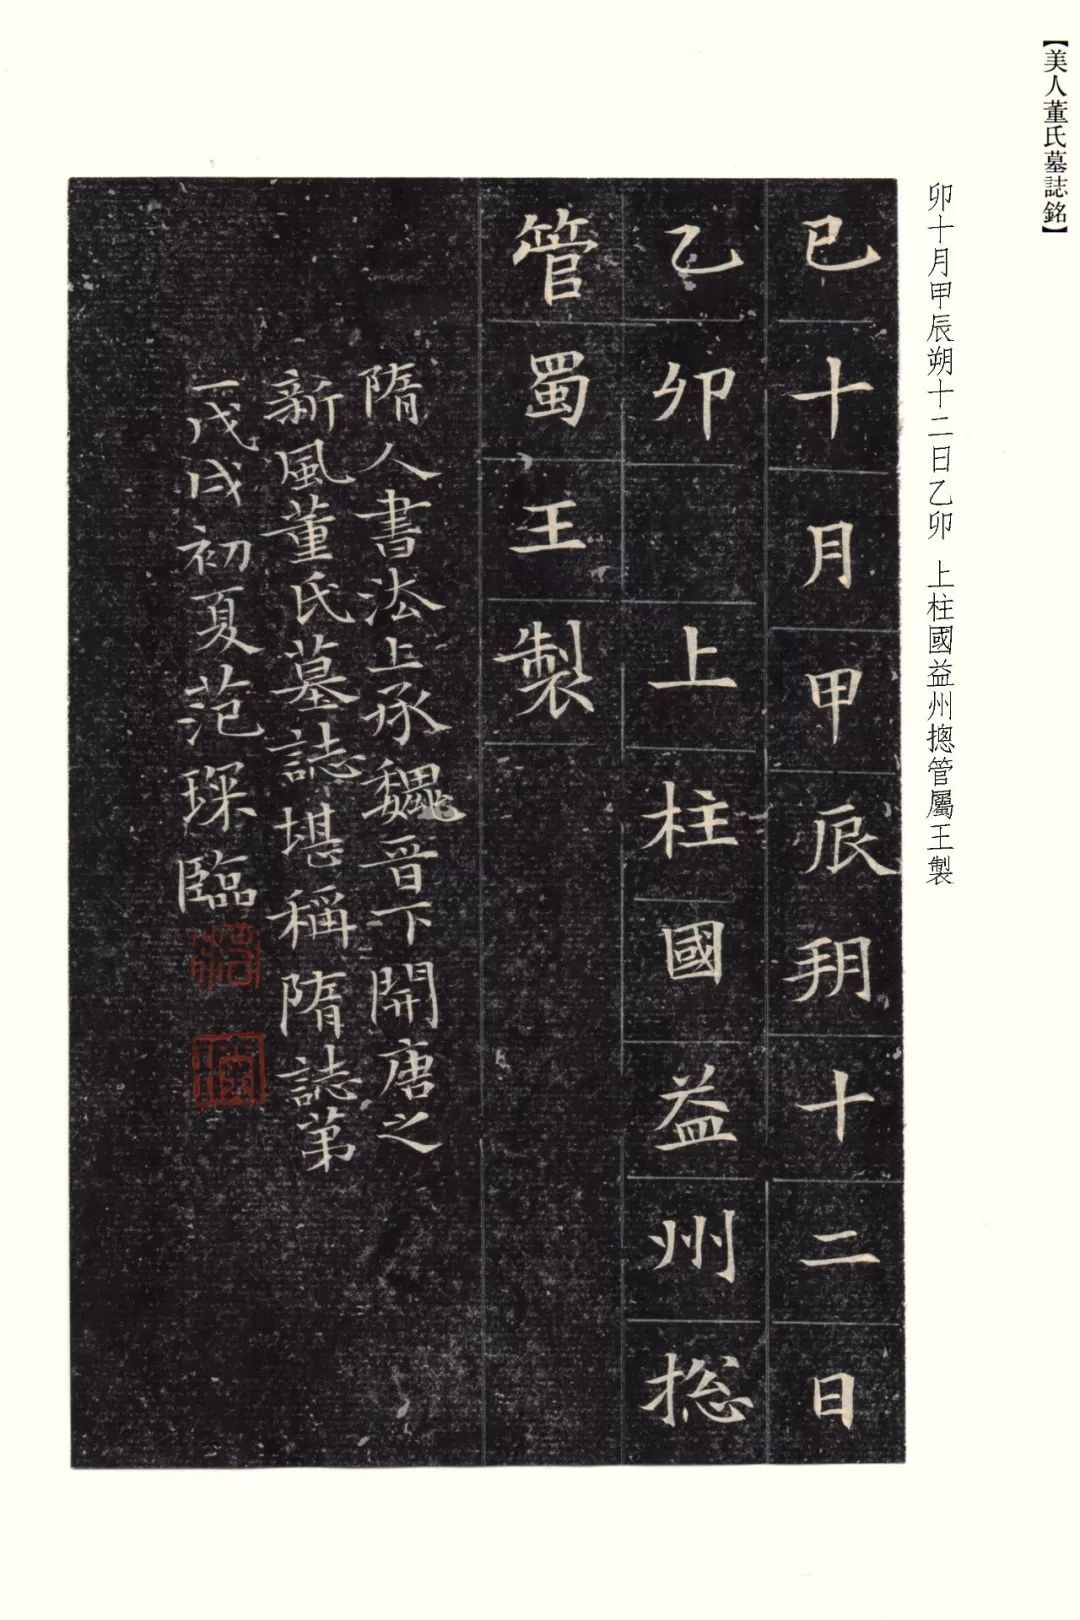 【美人董氏墓誌銘】
卯十月甲辰朔十二日乙卯 上柱國益州摠管屬王製
已十月甲辰朔十二日
乙卯 上柱國益州捴
管蜀王製
隋人書法上承魏晉下開唐之
新風董氏墓誌堪稱隋誌第
一戊戌初夏范琛臨